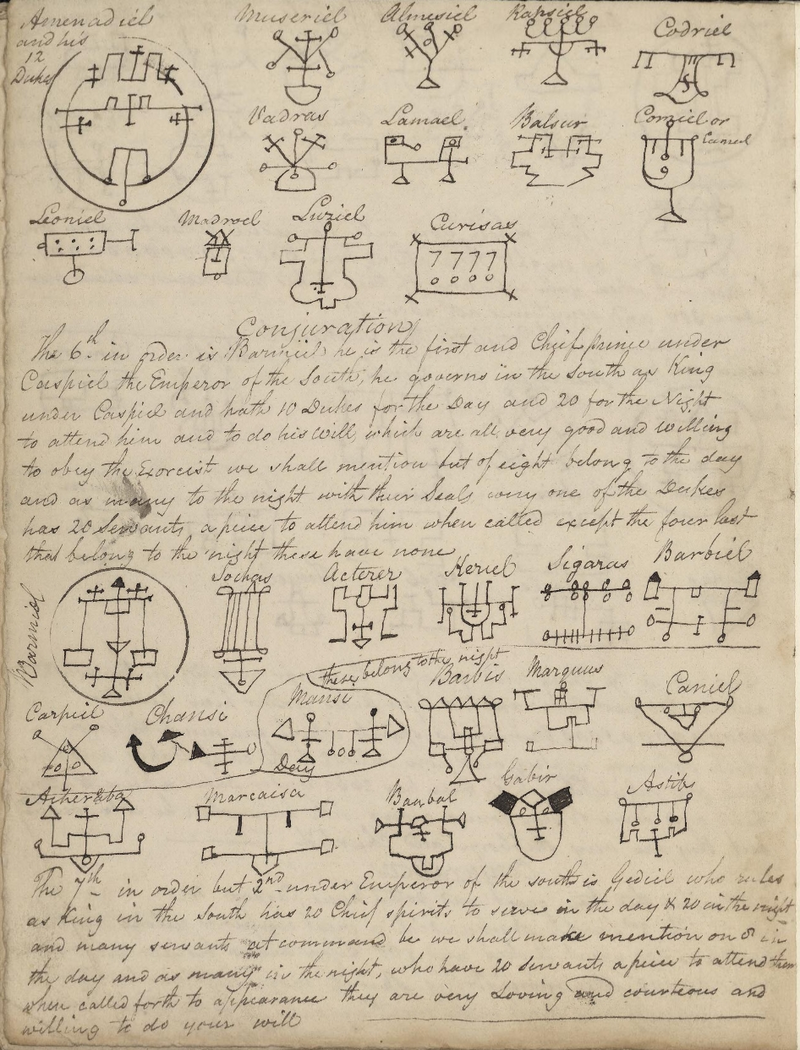 Amenadiel
and his
12
Dukes
Museriel
Almesiel
Rapsiel
Codriel
Vadras
Lamael
Balsur
Leoniel
Madroel
Luziel
Curisas
7 7 7 7
Conjuration
The 6th in order is Barmiel he is the first and Chief prince under
Caspiel the Emperor of the South, he governs in the South as King
under Caspiel and hath 10 Dukes for the Day and 20 for the Night
to attend him and to do his Will, which are all very good and Willing
to obey the Exorcist we shall mention but of eight belong to the day
and as many to the night with their Seals one of the Dukes
has 20 Servants apiece to attend him when called except the four last
that belong to the night these have none
Barmiel
Sochas
Acterer
Keriel
Sigaras
Barbiel
these belong to the night
Carpiel
Chansi
Mansi
Day
Barbis
Marquus
Caniel
Acheraba
Marcaisa
Baabal
Gabir
Astib
The 7th in order but 2nd under Emperor of the south is Gediel who rules
as King in the South has 20 Chief spirits to serve in the day & 20 in the night
and many servants at command be we shall make mention on 8 in
the day and as many in the night, who have 20 servants apiece to attend them
when called forth to appearance they are very Loving and courteous and
willing to do your will